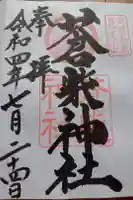 奉拝
蒼柴神社
令和四年七月二十四日